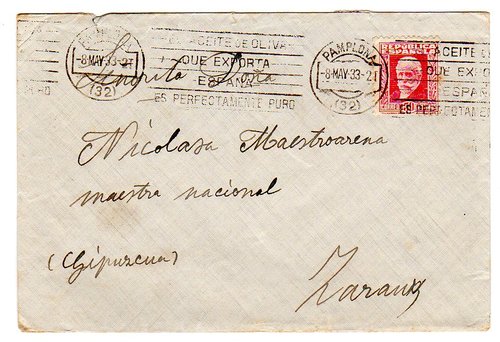 PAMPLONA
-8.MAY.33-21
(32)
EL ACEITE DE OLIVA
QUE EXPORTA
ESPAÑA
ES PERFECTAMENTE PURO
PURO
PAMPLONA
-8.MAY.33-21
(32)
REPÚBLICA
ESPAÑOLA
ACEITE DE
QUE EXPO
ESPAÑ
ES PERFECTAMEN
Señorita Doña
Nicolasa Maestroarena
maestra nacional
(Gipuzcua)
Zarauz